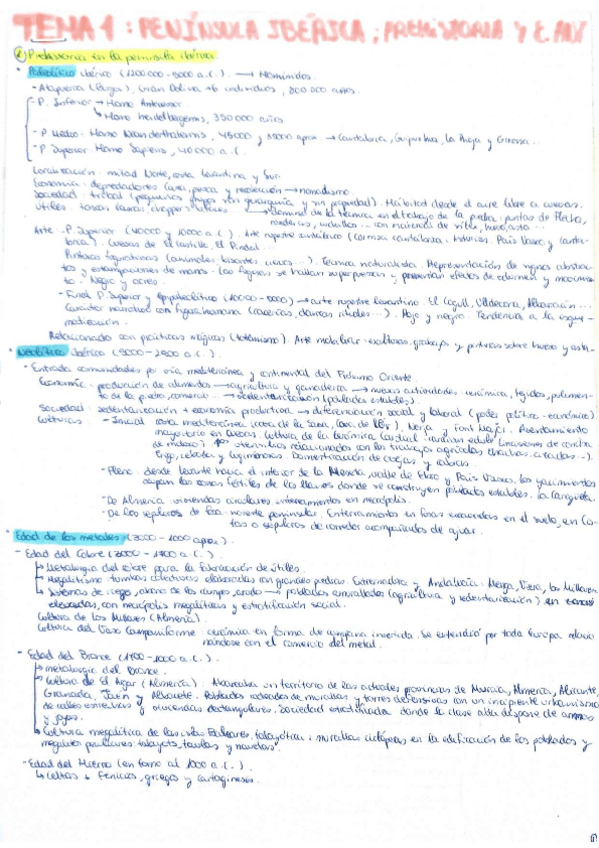 TEMA 1: PENÍNSULA IBÉRICA; PREHISTORIA Y E. ANT
Prehistoria en la península ibérica.
· Paleolítico ibérico (1200.000 - 5000 a.C.). → Homínidos.
- Atapuerca (Burgos), Gran Dolina → 6 individuos, 800.000 años.
- P. Inferior → Homo Antecessor
↳ Homo heidelbergensis, 350.000 años
- P. Medio: Homo Neanderthalensis, 45000 y 35000 aprox. → Cantabria, Guipuzkua, La Rioja y Girona...
- P. Superior: Homo Sapiens, 40000 a.C.
Localización: mitad Norte, costa levantina y Sur.
Economía: depredadores caza, pesca y recolección → nomadismo.
Sociedad: tribal (pequeños grupos sin jerarquía y sin propiedad). Hábitat desde el aire libre a cuevas.
Útiles toscos → Dominio de la técnica en el trabajo de la piedra: puntas de flecha,
raederas, cuchillos... con materiales de sílex, hueso, asta...
Arte: - P. Superior (40000 y 10000 a.C.). Arte rupestre (cornisa cantábrica: Asturias, País Vasco y Cantabria). Cuevas de El Castillo, El Pindal...
Pinturas figurativas (animales: bisontes, ciervos...). Técnica naturalista. Representación de signos abstractos y estampaciones de manos. Las figuras se hallan superpuestas y presentan efectos de volumen y movimiento. Negro y ocres.
- Final P. Superior y Epipaleolítico (10000 - 5000) → arte rupestre levantino. El Cogull, Valltorta, Albarracín...
Carácter narrativo con figura humana (cacerías, danzas rituales...). Rojo y negro. Tendencia a la esquematización.
Relacionado con prácticas mágicas (totémismo). Arte mobiliar: esculturas, grabados y pinturas sobre hueso y asta.
· Neolítico ibérico (5000 - 2500 a.C.).
- Entrada comunidades por vía mediterránea y continental del Próximo Oriente.
Economía: producción de alimentos → agricultura y ganadería → nuevas actividades: cerámica, tejidos, pulimento de la piedra, comercio... → sedentarización (poblados estables).
Sociedad: sedentarización + economía productiva → diferenciación social y laboral (poder político-económico)
Culturas - Inicial: costa mediterránea (cova de la Sarsa, cova de l'Or), Nerja y Font Major. Asentamiento
mayoritario en cuevas. Cultura de la cerámica cardial: cardium edule (incisiones de concha
de molusco). utensilios relacionados con los trabajos agrícolas (hachas, azadas...).
Trigo, cebada y leguminosas. Domesticación de ovejas y cabras.
- Pleno: desde levante hacia el interior de la Meseta, valle de Ebro y País Vasco, los yacimientos
ocupan las zonas fértiles de los llanos donde se construyen poblados estables. La Garrigueta.
- De Almería: viviendas circulares, enterramientos en necrópolis.
- De los sepulcros de fosa: noreste peninsular. Enterramientos en fosas excavadas en el suelo, en cistas o sepulcros de corredor acompañados de ajuar.
· Edad de los metales (3000 - 1000 aprox.).
- Edad del Cobre (3000 - 1700 a.C.).
↳ Metalurgia del cobre para la fabricación de útiles.
↳ Megalitismo: tumbas colectivas elaboradas con grandes piedras. Extremadura y Andalucía: Menga, Viera, los Millares
↳ Sistemas de riego, abono de los campos, arado → poblados amurallados (agricultura y sedentarización) en zonas
elevadas, con necrópolis megalíticas y estratificación social.
Cultura de los Millares (Almería).
Cultura del Vaso Campaniforme: cerámica en forma de campana invertida. Se extendió por toda Europa relacionándose con el comercio del metal.
- Edad del Bronce (1700 - 1000 a.C.).
↳ Metalurgia del Bronce.
↳ Cultura de El Argar (Almería): Abarcaba un territorio de las actuales provincias de Murcia, Almería, Alicante,
Granada, Jaén y Albacete. Poblados rodeados de murallas y torres defensivas con un incipiente urbanismo
de calles estrechas y viviendas rectangulares. Sociedad estratificada donde la clase alta dispone de armas
y joyas.
↳ Cultura megalítica de las islas Baleares, talayótica: murallas ciclópeas en la edificación de los poblados y
megalitos peculiares: talayots, taulas y navetas.
- Edad del Hierro (en torno al 1000 a.C.).
↳ Celtas + Fenicios, griegos y cartagineses.